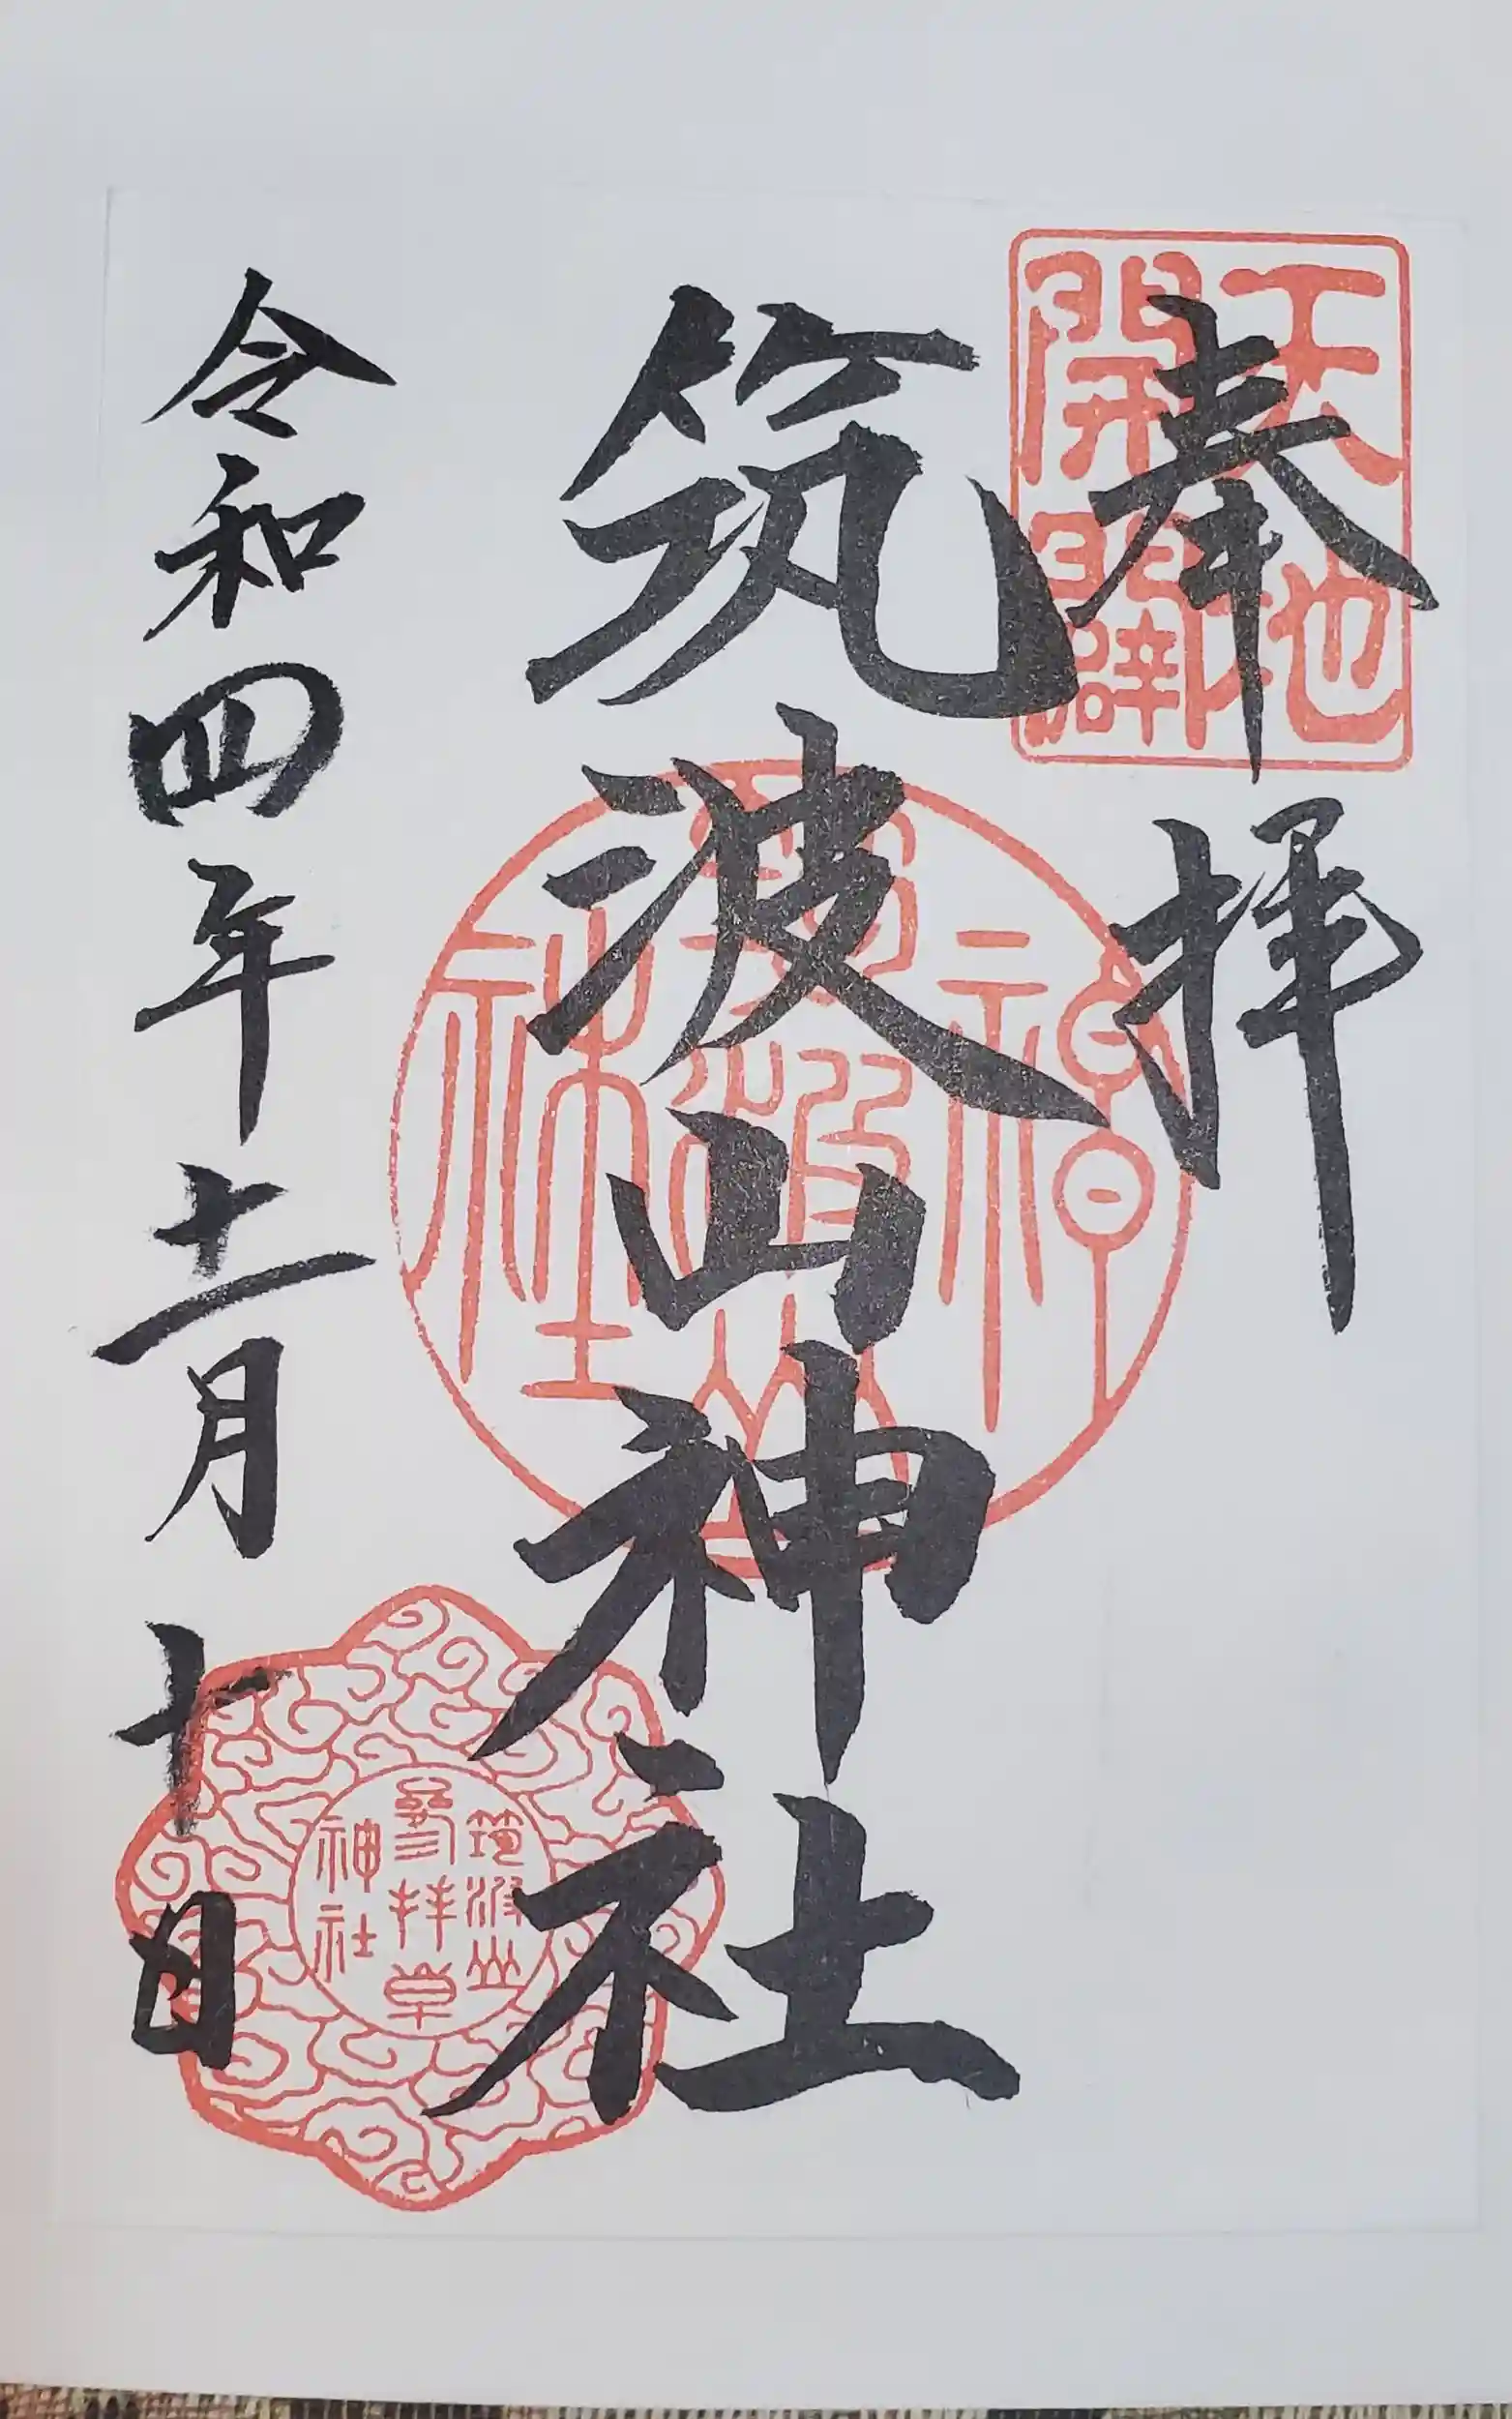 天地
開闢
奉拝
筑波山神社
神
筑波山
社
令和四年十一月十日
筑波山
參拝章
神社